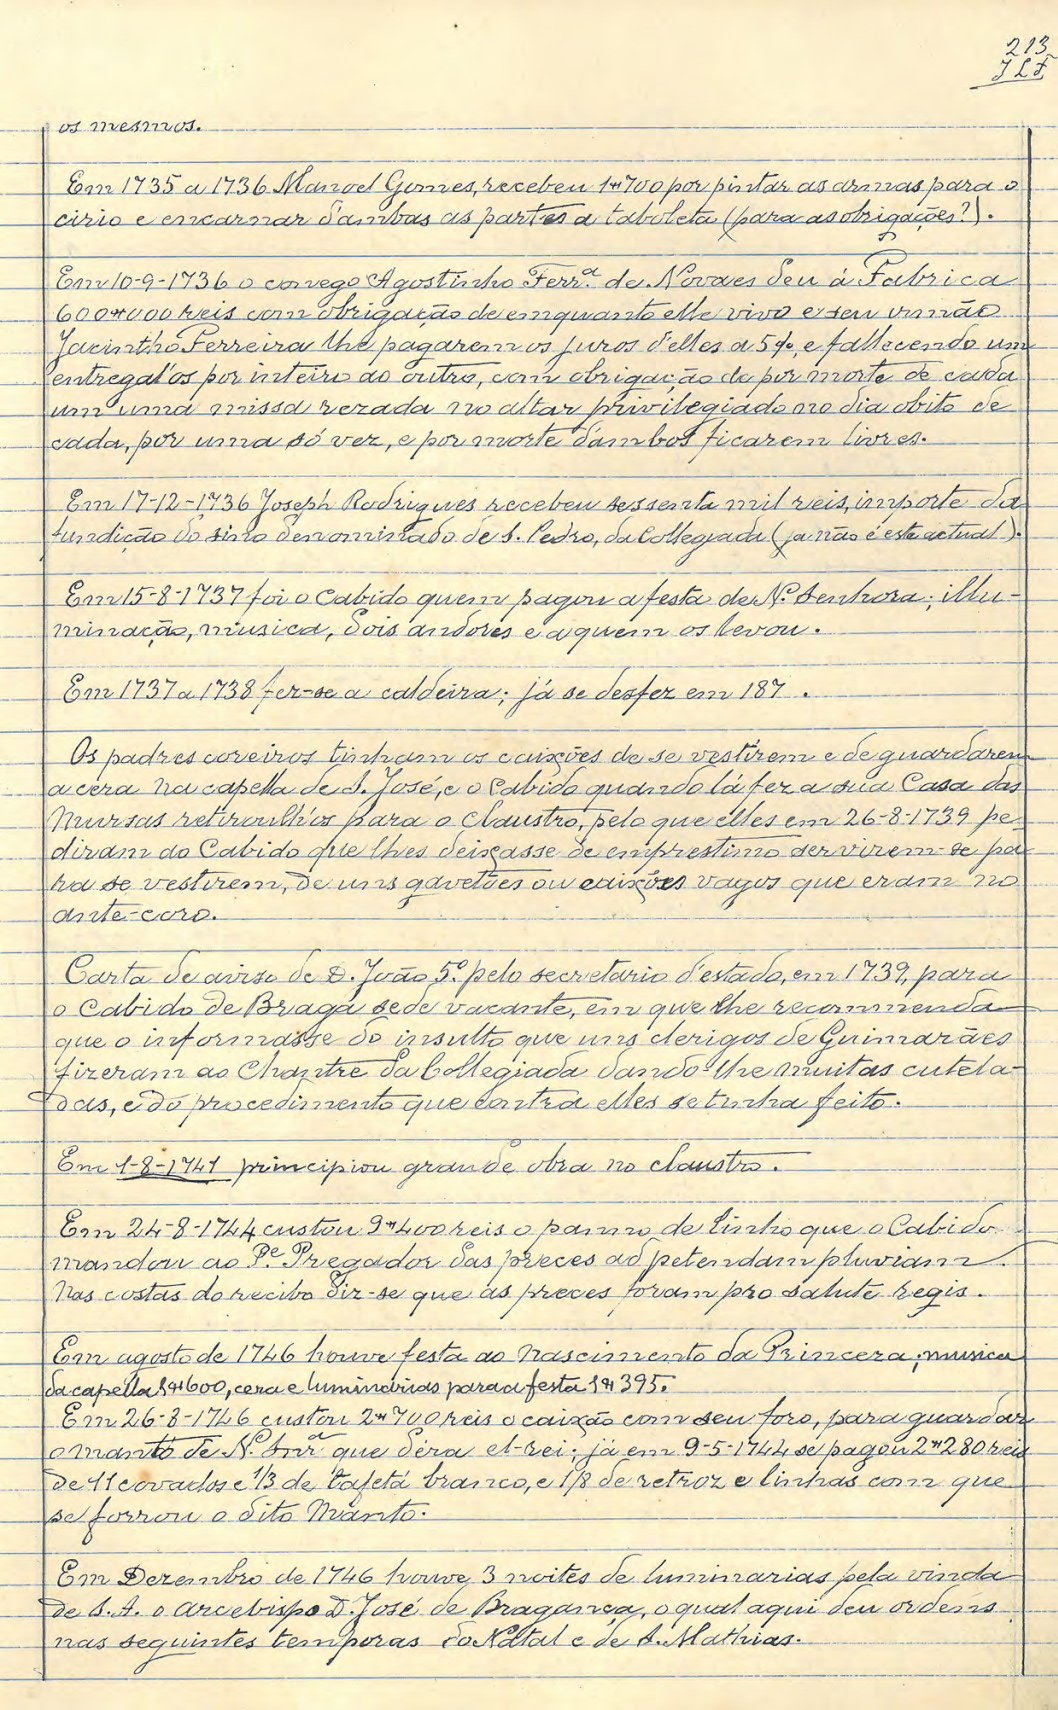 213
JLF
os mesmos.
Em 1735 a 1736 Manoel Gomes, recebeu 1$700 por pintar as armas para o
cirio e encarnar d'ambas as partes a taboleta (para as obrigações?).
Em 10-9-1736 o conego Agostinho Ferr.ª de Novaes deu á Fabrica
600$000 reis com obrigação de emquanto elle vivo e seu irmão
Jacintho Ferreira lhe pagarem os juros d'elles a 5%, e fallecendo um
entregal'os por inteiro ao outro, com obrigação de por morte de cada
um uma missa rezada no altar privilegiado no dia obito de
cada, por uma só vez, e por morte d'ambos ficarem livres.
Em 17-12-1736 Joseph Rodrigues recebeu sessenta mil reis, importe da
fundição do sino denominado de S. Pedro, da Collegiada (já não é este actual).
Em 15-8-1737 foi o Cabido quem pagou a festa de N.ª Senhora; illu-
minação, musica, dois andores e a quem os levou.
Em 1737 a 1738 fez-se a caldeira; já se desfez em 187 .
Os padres coreiros tinham os caixões de se vestirem e de guardarem
a cera na capella de S. José, e o Cabido quando lá fez a sua Casa das
Mursas retiroulh'os para o claustro, pelo que elles em 26-8-1739 pe-
diram ao Cabido que lhes deixasse de emprestimo servirem-se pa-
ra se vestirem, de uns gavetões ou caixões vagos que eram no
ante-coro.
Carta de aviso de D. João 5.º pelo secretario d'estado, em 1739, para
o Cabido de Braga sede vacante, em que lhe recommenda
que o informasse do insulto que uns clerigos de Guimarães
fizeram ao Chantre da Collegiada dando-lhe muitas cutela-
das, e do procedimento que contra elles se tinha feito.
Em 1-8-1741 principiou grande obra no claustro.
Em 24-8-1744 custou 9$400 reis o panno de linho que o Cabido
mandou ao P.e Pregador das preces ad petendam pluviam.
Nas costas do recibo diz-se que as preces foram pro salute regis.
Em agosto de 1746 houve festa ao nascimento da Princeza; musica
da capella 14$600, cera e luminarias para a festa 1$395.
Em 26-8-1746 custou 2$700 reis o caixão com seu foro, para guardar
o manto de N.ª Snr.ª que déra el-rei; já em 9-5-1744 se pagou 2$280 reis
de 11 covados e 1/3 de tafetá branco, e 1/8 de retroz e linhas com que
se forrou o dito Manto.
Em Dezembro de 1746 houve 3 noites de luminarias pela vinda
de S. A. o arcebispo D. José de Bragança, o qual aqui deu ordens
nas seguintes temporas do Natal e de S. Mathias.